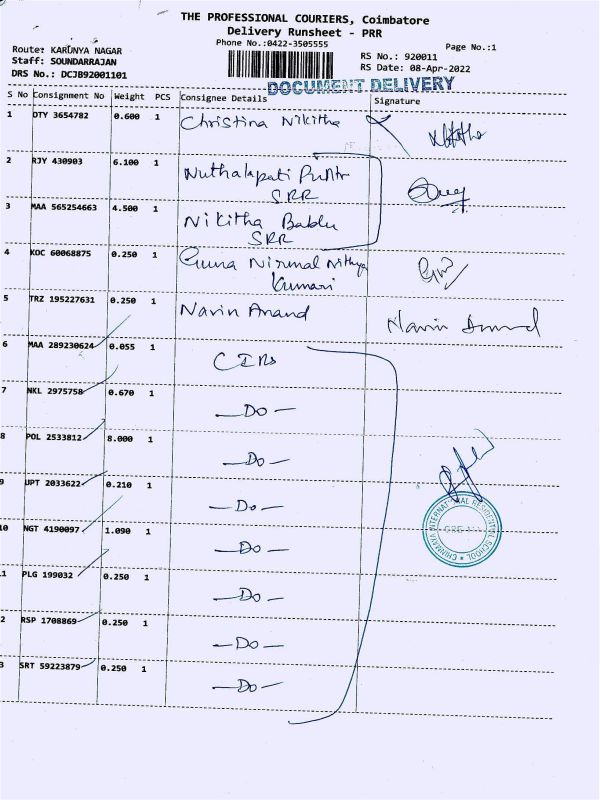 THE PROFESSIONAL COURIERS, Coimbatore
Delivery Runsheet - PRR
Phone No.:0422-3505555
Page No.:1
Route: KARUNYA NAGAR
Staff: SOUNDARRAJAN
DRS No.: DCJB92001101
RS No.: 920011
RS Date: 08-Apr-2022
DOCUMENT DELIVERY
S No Consignment No Weight PCS Consignee Details Signature
1 DTY 3654782 0.600 1 Christina Nikitha
2 RJY 430903 6.100 1 Nuthalapati
SRR
3 MAA 565254663 4.500 1 Nikitha Bablu
SRR
4 KOC 60068875 0.250 1 Guna Nirmal Nithya
Kumari
5 TRZ 195227631 0.250 1 Navin Anand Navin Anand
6 MAA 289230624 0.055 1 CIRS
7 NKL 2975758 0.670 1 -Do-
8 POL 2533812 8.000 1 -Do-
9 UPT 2033622 0.210 1 -Do-
10 NGT 4190097 1.090 1 -Do-
1 PLG 199032 0.250 1 -Do-
2 RSP 1708869 0.250 1 -Do-
3 SRT 59223879 0.250 1 -Do-
CHINMAYA INTERNATIONAL RESIDENTIAL SCHOOL